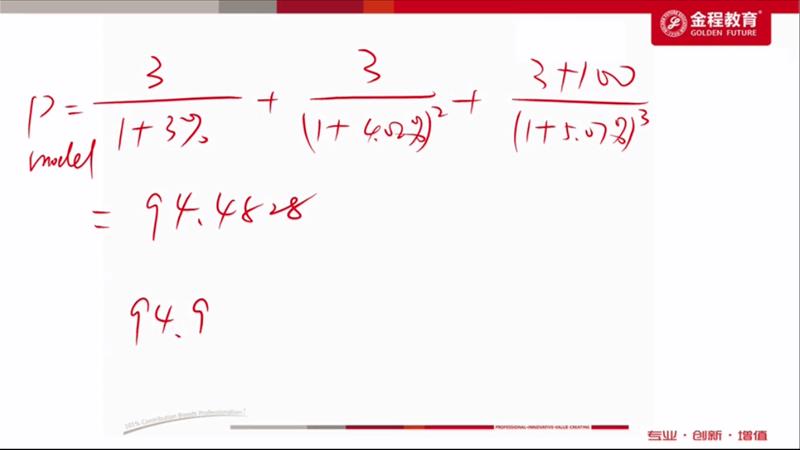 金程教育
GOLDEN FUTURE
P model = 3/(1+3%) + 3/(1+4.02%)^2 + (3+100)/(1+5.07%)^3
= 94.4828
94.9
101% Contribution Breeds Professionalism!
PROFESSIONAL·INNOVATIVE·VALUE-CREATING
专业·创新·增值